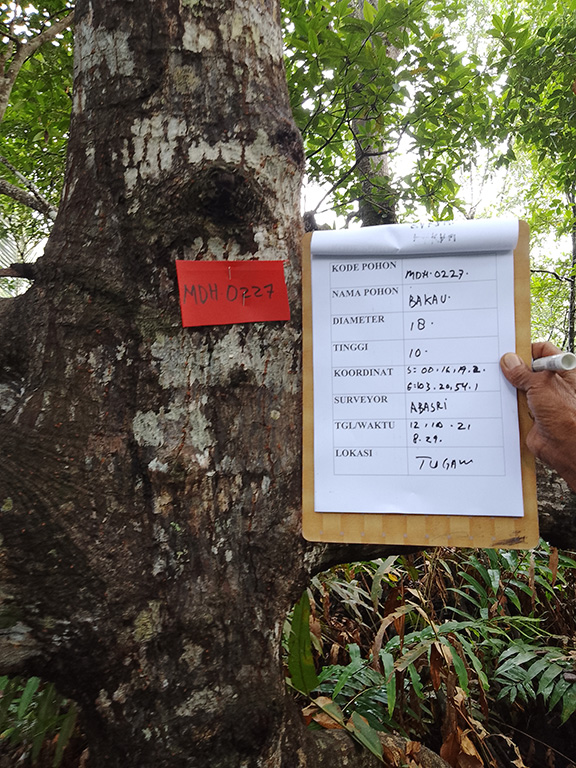 MDH.0227
KODE POHON MDH.0227.
NAMA POHON BAKAU.
DIAMETER 18.
TINGGI 10.
KOORDINAT S: 00.16.19.2.
E:103.20.54.1
SURVEYOR ABASRI
TGL/WAKTU 12.10.21
8.29.
LOKASI